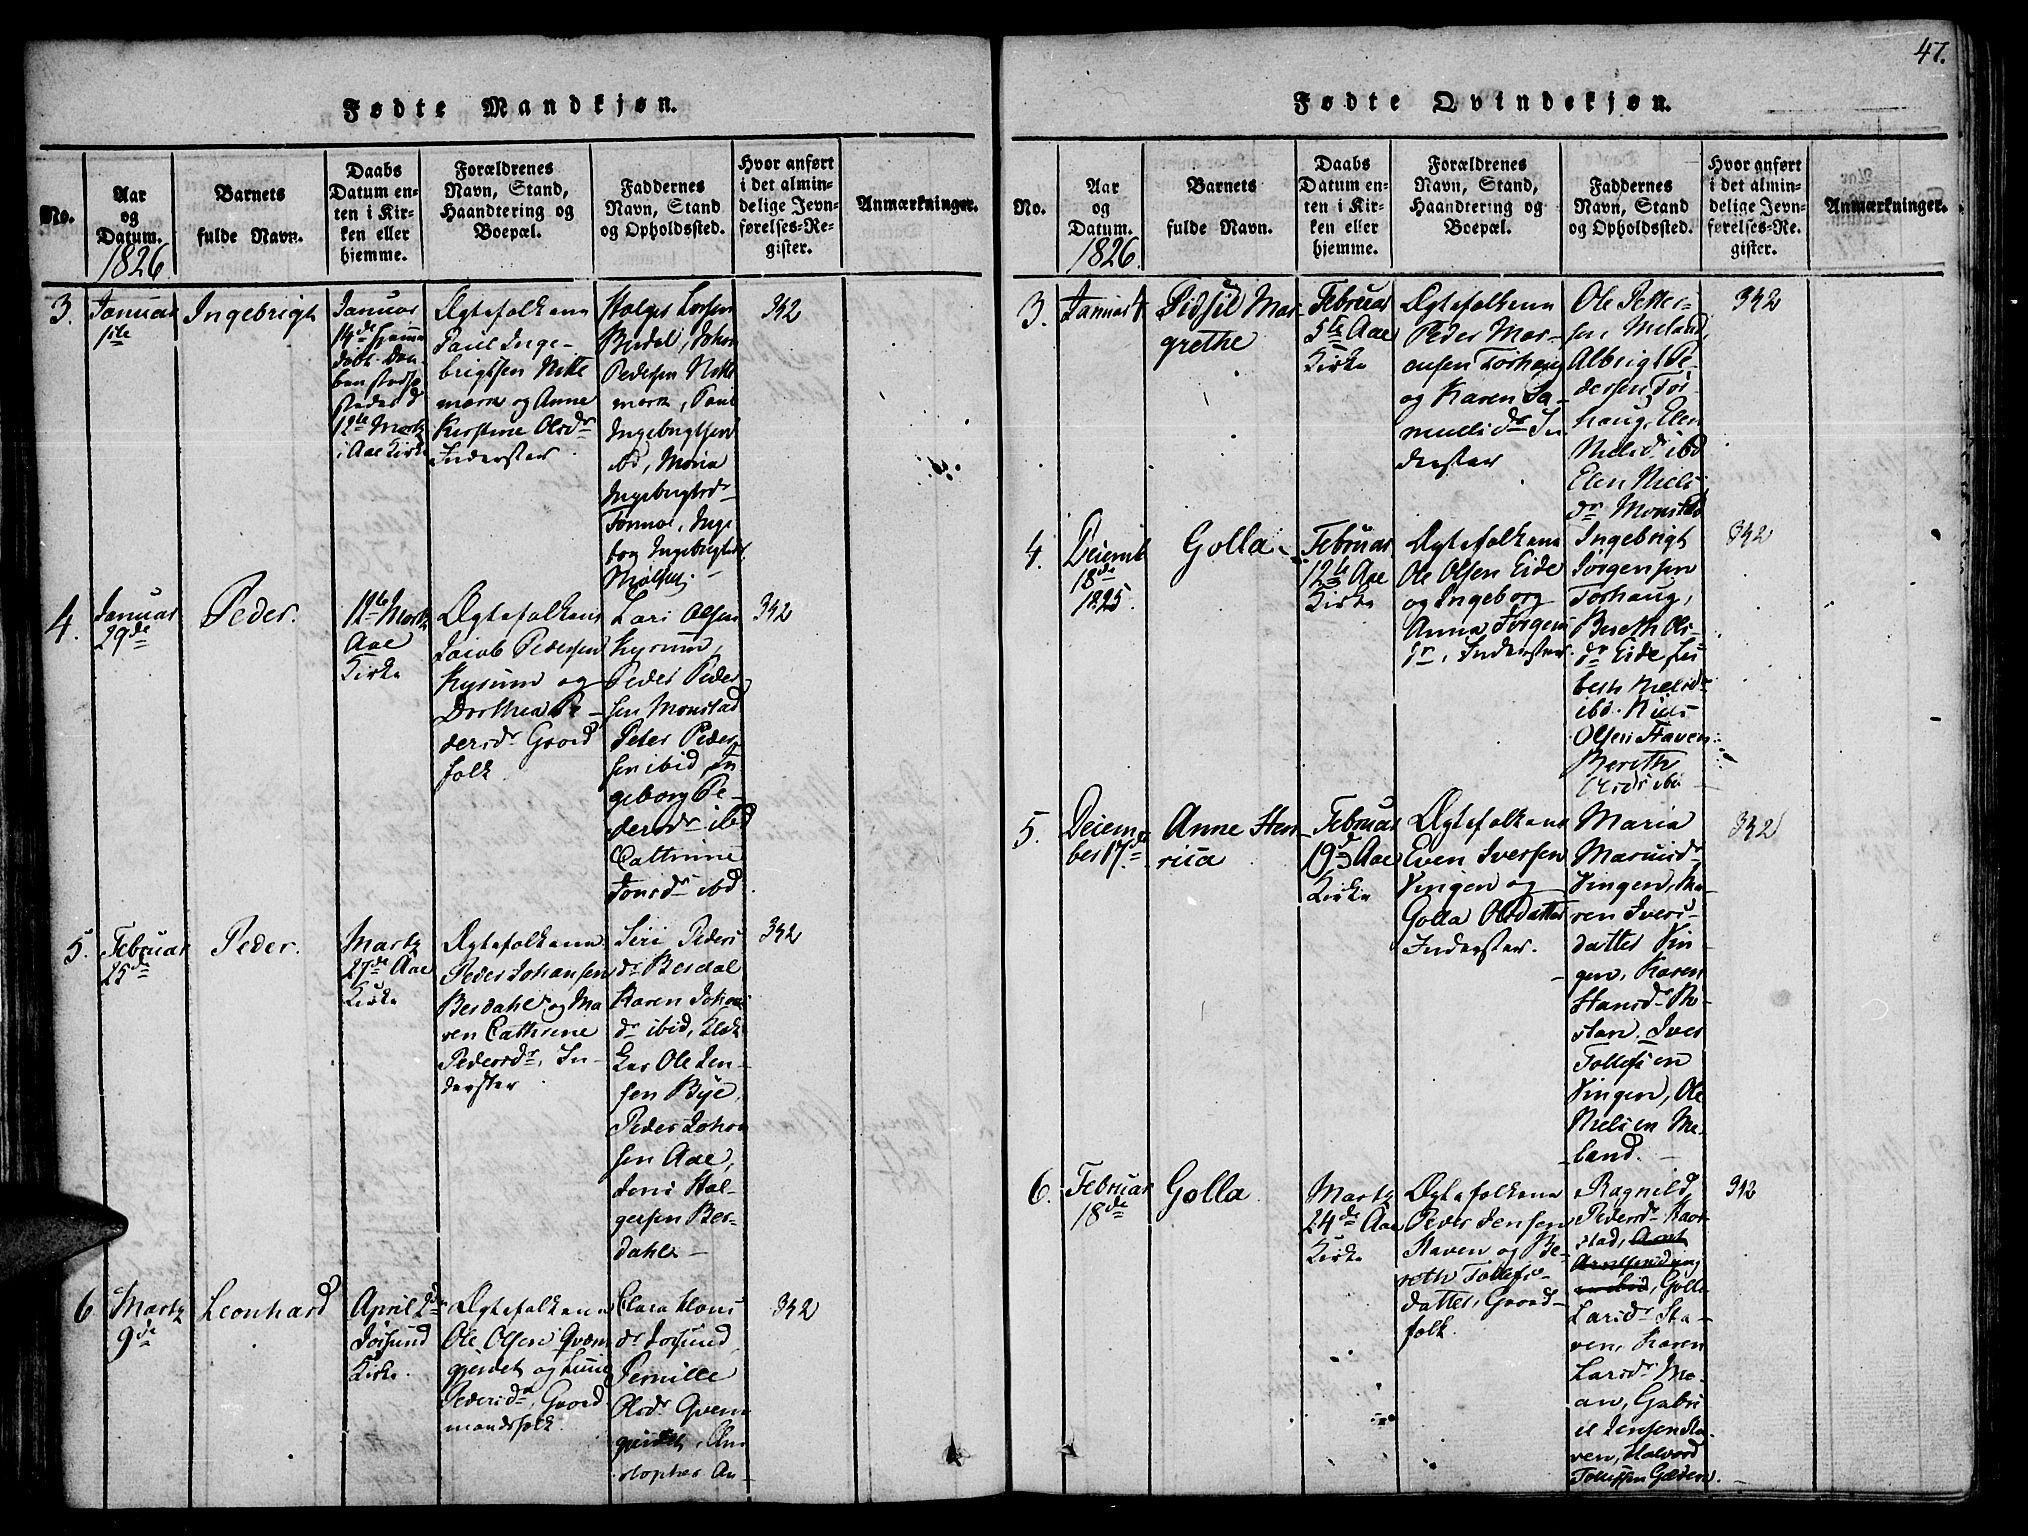 47.
Fødte Mandkjøn.
No.
Aar
og
Datum.
1826
Barnets
fulde Navn.
Daabs
Datum en-
ten i Kir-
ken eller
hjemme.
Forældrenes
Navn, Stand,
Haandtering og
Boepæl.
Faddernes
Navn, Stand
og Opholdssted.
Hvor anført
i det almin-
delige Jevn-
førelses-Re-
gister.
Anmærkninger.
3.
Januar
1ste
Ingebrigt
Januar
14de
12te Martz
i Aae Kirke
Ægtefolkene
Paul Inge-
brigtsen
og Anne
Kirstine Olsdr
Inderster
Holger
Johan
Pedersen
Paul
Ingebrigtsen
ibd, Maria
Ingebrigtsdr
Inge
borg Ingebrigtsdr
342
4.
Januar
29de
Peder.
12te Martz
Aae
Kirke
Ægtefolkene
Jacob Pedersen
Kysum og
Dorthea Pe-
dersdr Gaard
folk
Lars Olsen
Kysum,
Peder Peder
sen Monstad
Peter Peder
sen ibid, In
geborg Pe-
dersdr ibd
Cathrine
Jonsdr ibd
342
5.
Februar
25de
Peder.
Martz
27de Aae
Kirke
Ægtefolkene
Peder Johansen
Berdahl og Ma
ren Cathrine
Pedersdr, In-
derster
Siri Peders
dr Berdal
Karen Johans
dr ibid, Klok
ker Ole Jen-
sen Bye
Peder Johan
sen Aae,
Jens Hol-
gersen Ber-
dahl
342
6
Martz
9de
Leonhard
April 2de
Jøssund
Kirke
Ægtefolkene
Ole Olsen Qvæn
gjerdet og
Pedersdr, Gaard
mandsfolk
Clara
dr Jossund,
Pernille
Olsdr Qvern
gjerdet,
stopher An-
342
Fødte Qvindekjøn.
No.
Aar
og
Datum.
1826
Barnets
fulde Navn.
Daabs
Datum en-
ten i Kir-
ken eller
hjemme.
Forældrenes
Navn, Stand,
Haandtering og
Boepæl.
Faddernes
Navn, Stand
og Opholdssted.
Hvor anført
i det almin-
delige Jevn-
førelses-Re-
gister.
Anmærkninger.
3.
Januar 4
Mar
grethe
Februar
5te Aae
Kirke
Ægtefolkene
Peder Mor-
tensen Torhaug
og Karen Sa-
muelsdr In
derster
Ole Petter-
sen Meland,
Albrigt Pe
dersen Tor
haug, Elen
Nielsdr ibd
Elen Niels
dr Monstad
342
4.
Decemb
18de
1825.
Golla
Februar
12te Aae
Kirke
Ægtefolkene
Ole Olsen Eide
og Ingeborg
Anna Jørgens
dr, Inderster
Ingebrigt
Jørgensen
Torhaug,
Bereth Ols-
dr Eide,
Nielsdr
ibd. Niels
Olsen Staven
Bereth
Olsdr ibd
342
5.
Decem
ber 17de
Anne Hen
rica
Februar
19de Aae
Kirke
Ægtefolkene
Even Iversen
Vingen og
Golla Olsdatter
Inderster.
Maria
Vingen, Ma-
ren Ivers-
datter Vin-
gen, Karen
Hansdr Ro-
stan, Iver
Tollefsen
Vingen, Ole
Nielsen Me-
land.
342
6.
Februar
18de
Golla
Martz
24de Aae
Kirke
Ægtefolkene
Peder Jensen
Staven og Be-
reth Tollefs-
datter, Gaard-
folk.
Ragnild
Pedersdr
stad, Arnt
Golla
Larsdr Sta-
ven, Karen
Larsdr Mo-
an, Gabri
el Jensen Sta
ven, Halvord
Tollefsen
342